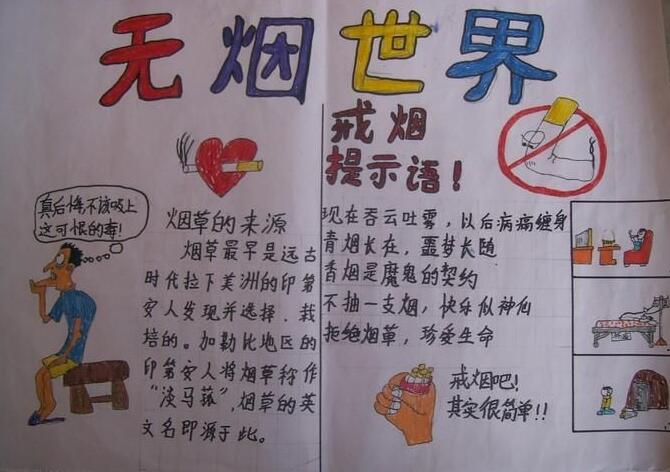 无烟世界
真后悔,不该吸上
这可恨的毒!
烟草的来源
烟草最早是远古
时代拉丁美洲的印第
安人发现并选择.栽
培的。加勒比地区的
印第安人将烟草称作
“淡马菰”,烟草的英
文名即源于此。
戒烟
提示语!
现在吞云吐雾,以后病痛缠身
青烟长在,噩梦长随
香烟是魔鬼的契约
不抽一支烟,快乐似神仙
拒绝烟草,珍爱生命
戒烟吧!
其实很简单!!